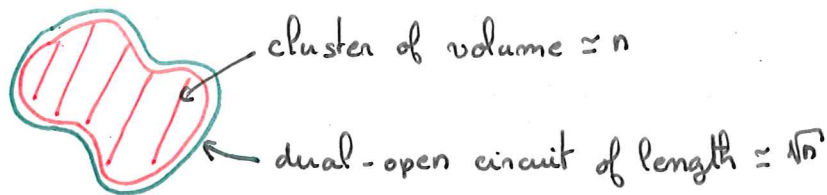 cluster of volume ≃ n
dual-open circuit of length ≃ √n